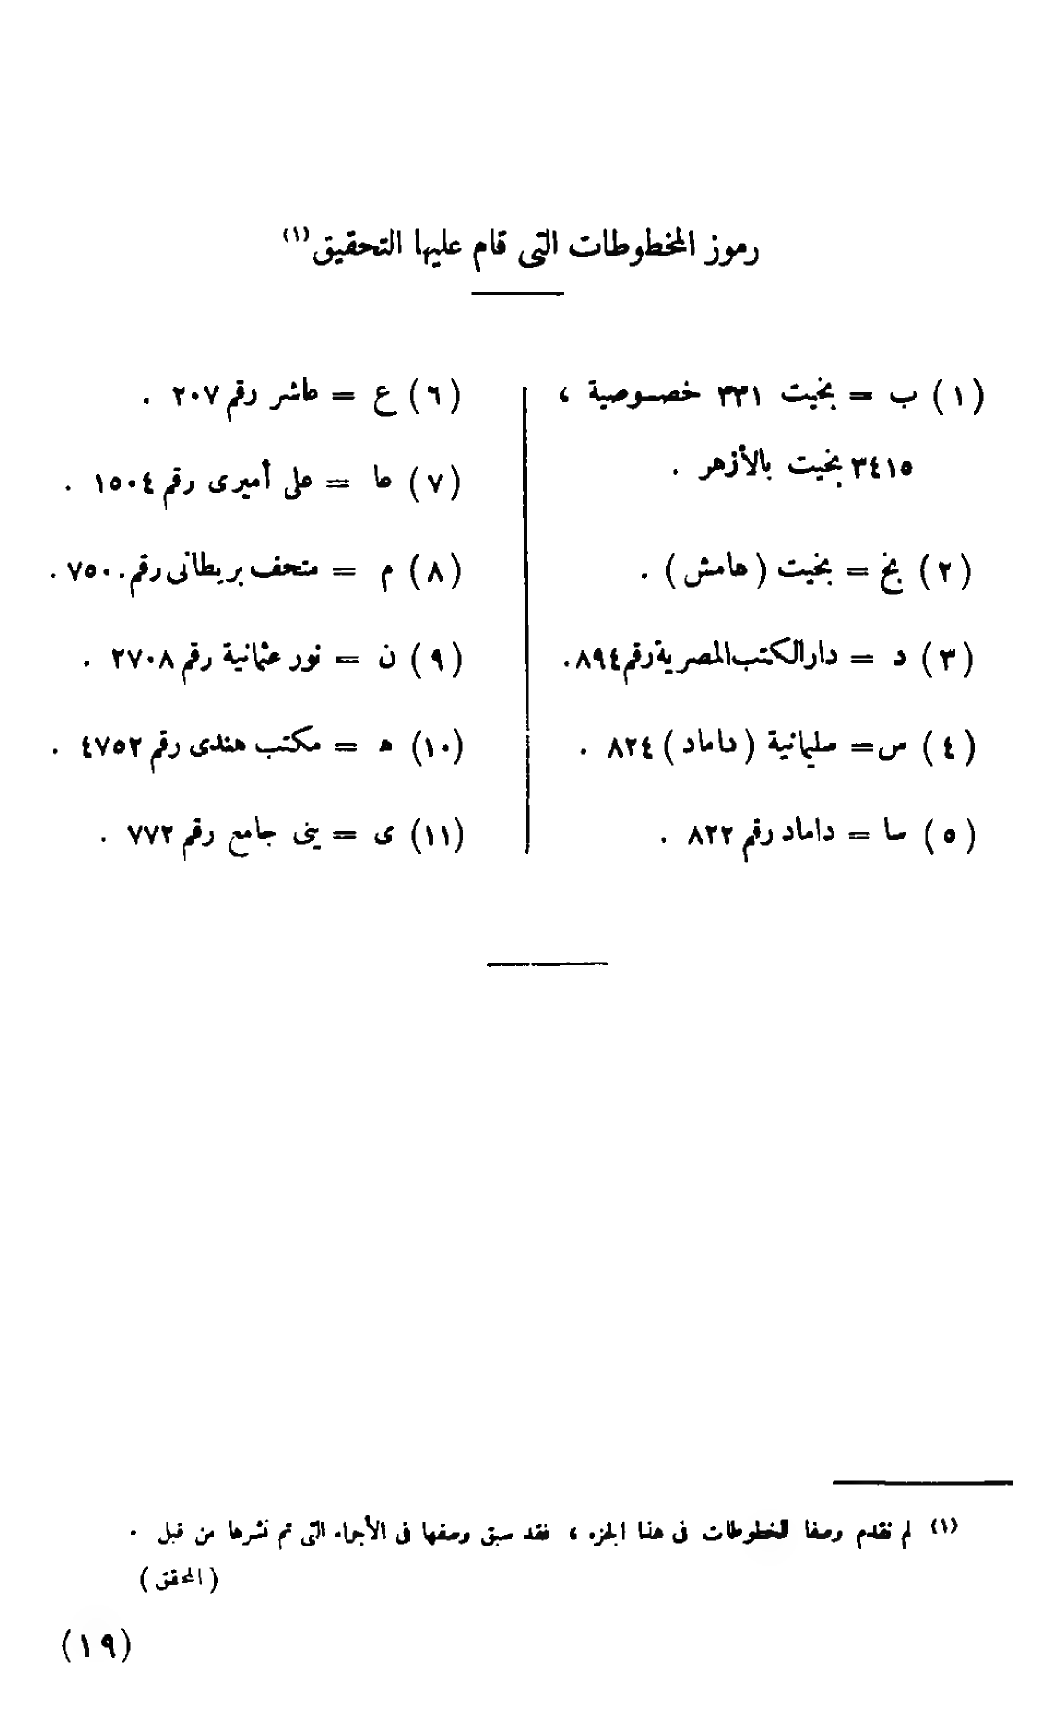 رموز المخطوطات التى قام عليها التحقيق (١)
(١) ب = بخيت ٣٣١ خصوصية ،
٣٤١٥ بخيت بالأزهر .
(٢) بخ = بخيت (هامش) .
(٣) د = دار الكتب المصرية رقم ٨٩٤.
(٤) س = سليمانية (داماد) ٨٢٤ .
(٥) سا = داماد رقم ٨٢٢ .
(٦) ع = عاشر رقم ٢٠٧ .
(٧) عا = على أميرى رقم ١٥٠٤ .
(٨) م = متحف بريطانى رقم ٧٥٠٠ .
(٩) ن = نور عثمانية رقم ٢٧٠٨ .
(١٠) ه = مكتب هندى رقم ٤٧٥٢ .
(١١) ى = ينى جامع رقم ٧٧٢ .
(١) لم نقدم وصفا للخطوطات فى هذا الجزء ، فقد سبق وصفها فى الأجزاء التى تم نشرها من قبل .
(المحقق)
(١٩)